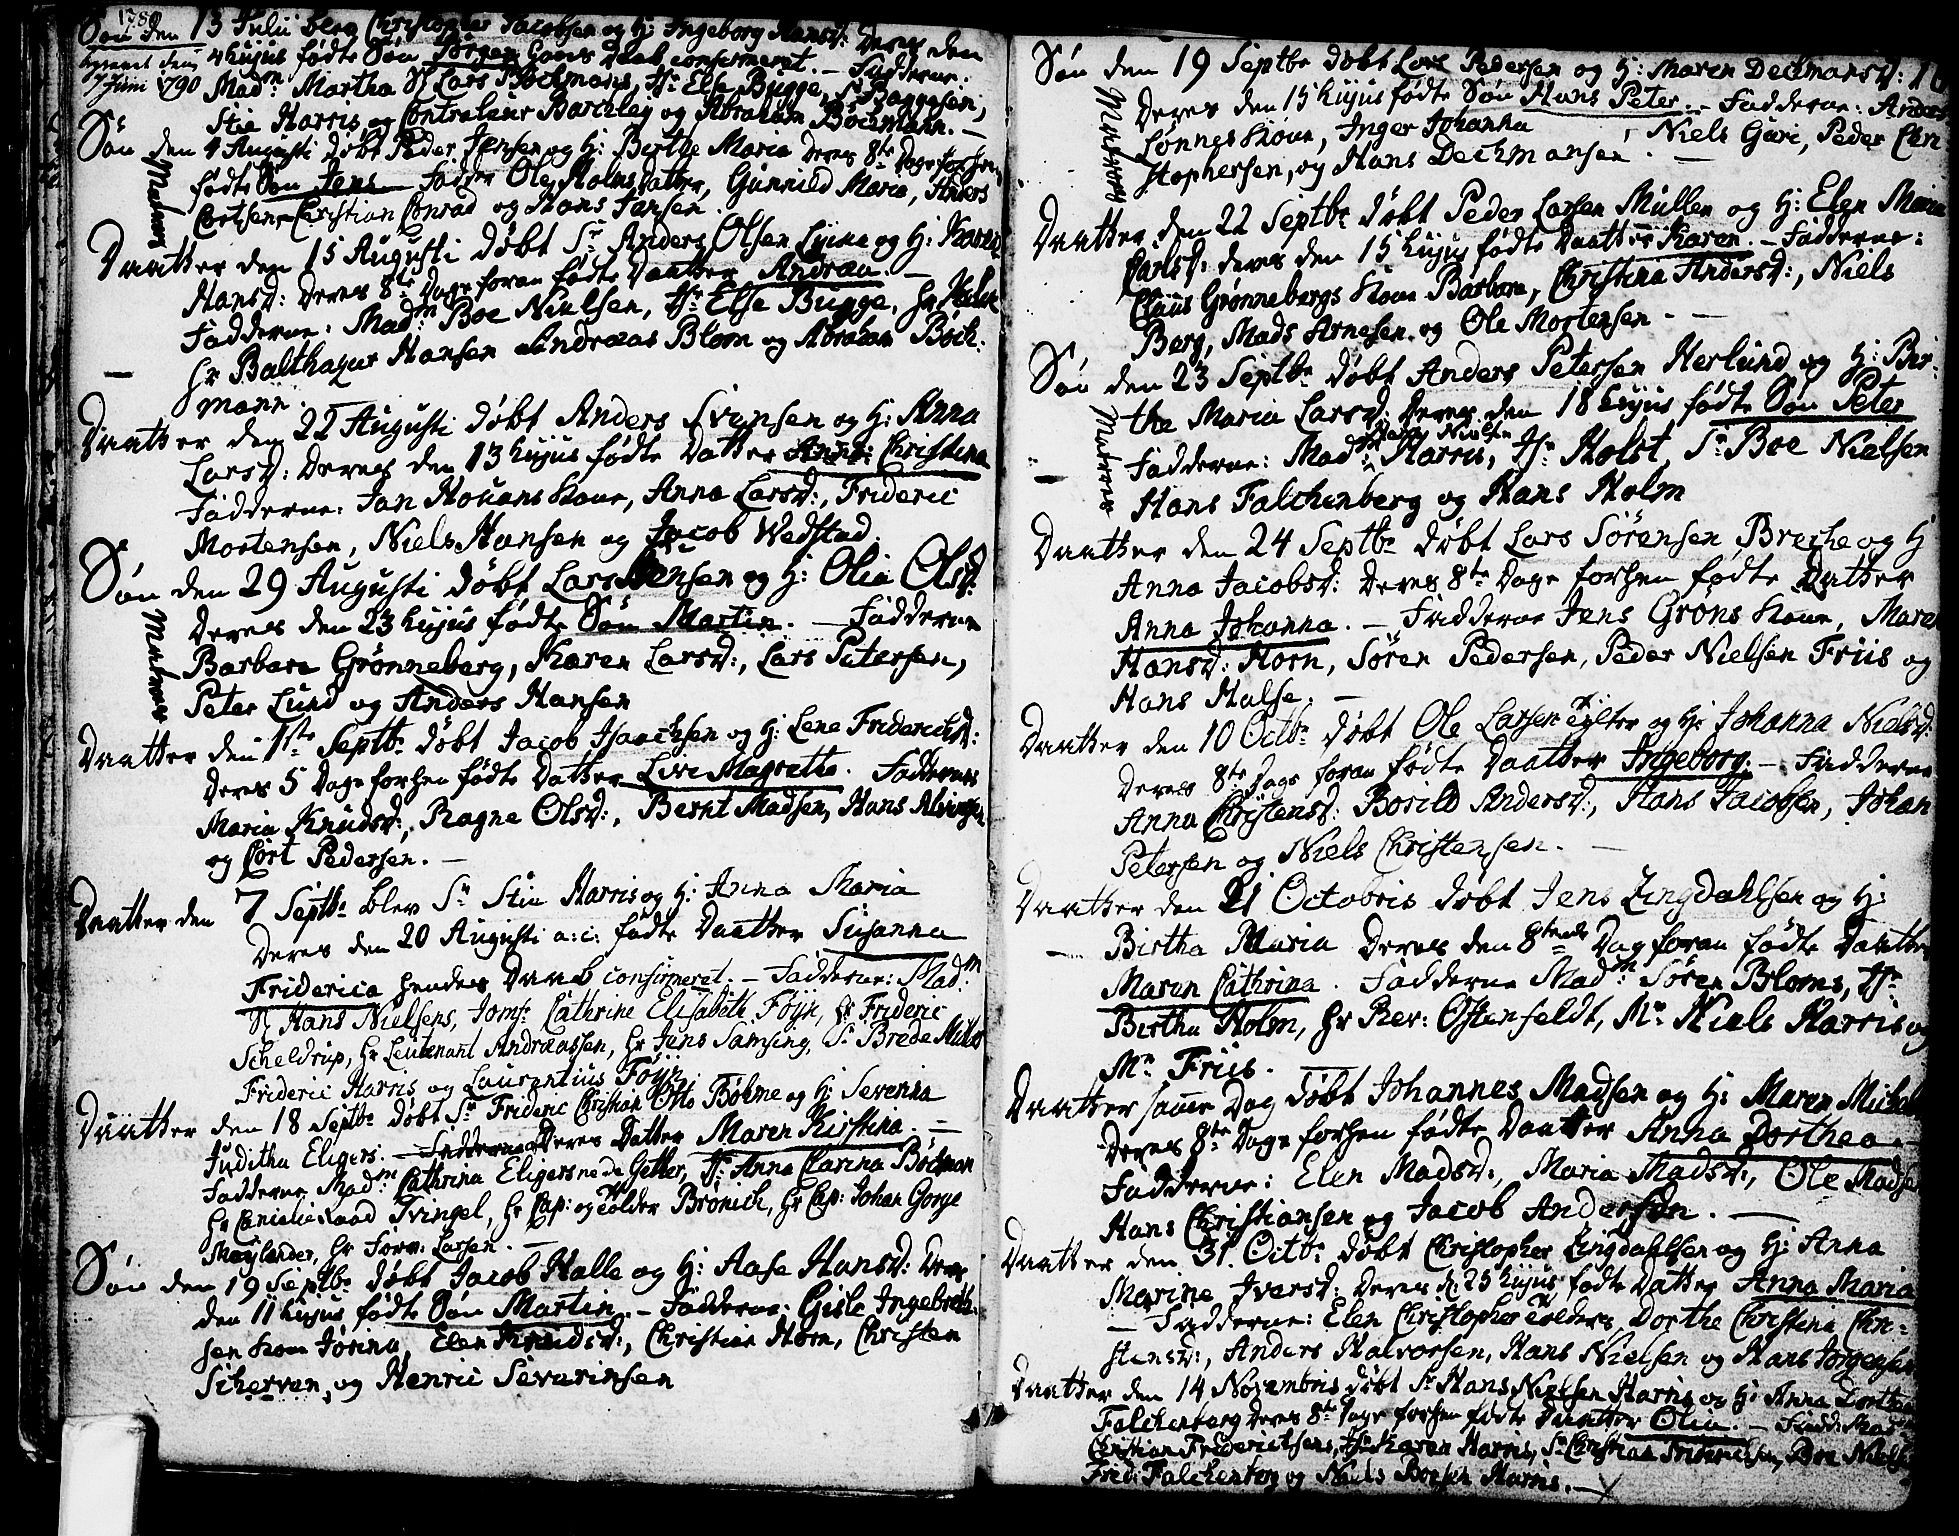 1789
Søn den 13 Julii blev Christopher Jacobsen og H: Ingeborg Hansd: Deres den
4 hujus fødte Søn Jörgen hans Daab confirmeret. — Fadderne:
7 Juni 1790 Mad:m Martha Sl Lars Böckmans, Jfr Else Bugge, Sr Baggesen,
Stie Harris, og Controleur Barclay og Abraham Böckmann. —
Søn den 4 Augusti döbt Peder Jensen og H: Birthe Maria Deres 8te Dage forhen
Matros
fødte Søn Jens Fadder Ole Holms Datter, Gunnild Maria, Anders
Cortsen, Christian Conrad og Hans Jansen.
Daatter den 15 Augusti döbt Sr Anders Olsen og H: Karen
Hansd: Deres 8te Dage foran fødte Daatter Andræa. —
Fadderne: Mad:m Boe Nielsen, Jfr Else Bugge, Hr
Hr Balthazar Hansen Andræas Blom og Abraham Böck:
mann.
Daatter den 22 Augusti döbt Anders Svensen og H: Anna
Larsd: Deres den 13 hujus födte Datter Anna Christina
Fadderne: Jan Houans Kone, Anna Larsd:, Frideric
Mortensen, Niels Hansen og Jacob Wedstad.
Søn den 29 Augusti döbt Lars Jensen og H: Olia Olsd:
Matros
Deres den 23 hujus födte Søn Martin. — Fadderne
Barbara Grönneberg, Karen Larsd:, Lars Petersen,
Peter Lund og Anders Hansen
Daatter den 1ste Septbr döbt Jacob Isaachsen og H: Lene Friderichsd:
Deres 5 Dage forhen födte Datter Live Magrethe. Fadderne
Maria Knudsd:, Ragne Olsd:, Bernt Madsen, Hans
og Cort Pedersen. —
Daatter den 7 Septbr blev Sr Stie Harris og H: Anna Maria
Deres den 20 Augusti a: c: födte Daatter Susanna
Friderica hendes Daab confirmeret. — Fadderne: Mad:m
Sl Hans Nielsens, Jomfr Cathrine Elisabeth Föyn, Hr Frideric
Scheldrup, Hr Leutenant Andræassen, Hr Jens Samsing, Sr Brede
Frideric Harris og Laurentius Föyn
Daatter den 18 Septbr döbt Sr Frideric Christian Otto Böhme og H: Severina
Juditha Eligers. — Deres Datter Maren Kirstina. —
Fadderne Mad:m Cathrina Eligers nede Getler, Jfr Anna Carina Böckman
Hr Cancelieraad Tvingel, Hr Cap: og Tolder Bronick, Hr Cap: Johan Gorge
Maylander, Hr Forv: Larsen. —
Søn den 19 Septbr döbt Jacob Halle og H: Aase Hansd: Deres
den 11 hujus fødte Søn Martin. — Fadderne: Gisle Ingebreth:
sen Kone Jörina, Elen Knudsd:, Christian Horn, Christen
Scherven, og Henric Severinsen
Søn den 19 Septbr döbt Lars Pedersen og H: Maren Deckmansd:
Matros
Deres den 15 hujus födte Søn Hans Peter. — Fadderne: Anders
Lönnes Kone, Inger Johanna, Niels Gari, Peder Chri
stophersen, og Hans Dechmansen. —
Daatter den 22 Septbr döbt Peder Larsen Müller og H: Elen Maria
Carlsd: deres den 15 hujus födte Daatter Karen. — Fadderne:
Claüs Grønnebergs Kone Barbara, Christina Andersd:, Niels
Berg, Mads Arnesen og Ole Mortensen. —
Søn den 23 Septbr döbt Anders Petersen Herlund og H: Bir:
Matros
the Maria Larsd: Deres den 18 hujus födte Søn Peter
Fadderne: Mad:m Peder Nielsen Harris, Jfr Holst, Sr Boe Nielsen
Hans Falchenberg og Hans Holm
Daatter den 24 Septbr döbt Lars Sörensen Breche og H
Anna Jacobsd: Deres 8te Dage forhen födte Datter
Anna Johanna. — Fadderne Jens Gröns Kone, Maren
Hansd: Horn, Sören Pedersen, Peder Nielsen Friis og
Hans Halse. —
Daatter den 10 Octbr döbt Ole Larsen og H: Johanna Nielsd:
Deres 8te Dags foran födte Daatter Ingeborg. — Fadderne
Anna Christensd: Borild Andersd:, Hans Jacobsen, Johan
Petersen og Niels Christensen. —
Daatter den 21 Octobris döbt Jens Lingdahlsen og H:
Birtha Maria Deres den 8tende Dag foran fødte Daatter
Maren Cathrina. Fadderne Mad:m Sören Bloms, Jfr
Birtha Holm, Hr Rev: Ostenfeldt, Mr Niels Harris og
Mr Friis. —
Daatter samme Dag döbt Johannes Madsen og H: Maren Michels
Deres 8te Dage forhen födte Daatter Anna Dorthea —
Fadderne: Elen Madsd:, Maria Madsd:, Ole Madsen
Hans Christiansen og Jacob Andersen. —
Daatter den 31. Octbr döbt Christopher Lingdahlsen og H: Anna
Marine Iversd: Deres d. 25 hujus födte Datter Anna Maria
— Fadderne: Elen Christopher Tolders, Dorthe Christina Chri:
stensd:, Anders Halvorsen, Hans Nielsen og Hans Jörgensen
Daatter den 14 Novembris döbt Sr Hans Nielsen Harris og H: Anna Dorthea
Falchenberg Deres 8te Dage forhen födte Daatter Olia. — Fadd: Mad:m
Christian Friderichsens, Jfr Karen Harris, Sr Christian Friderichsen, Boe Nielsen
Frid: Falchenberg og Niels Boesen Harris. —